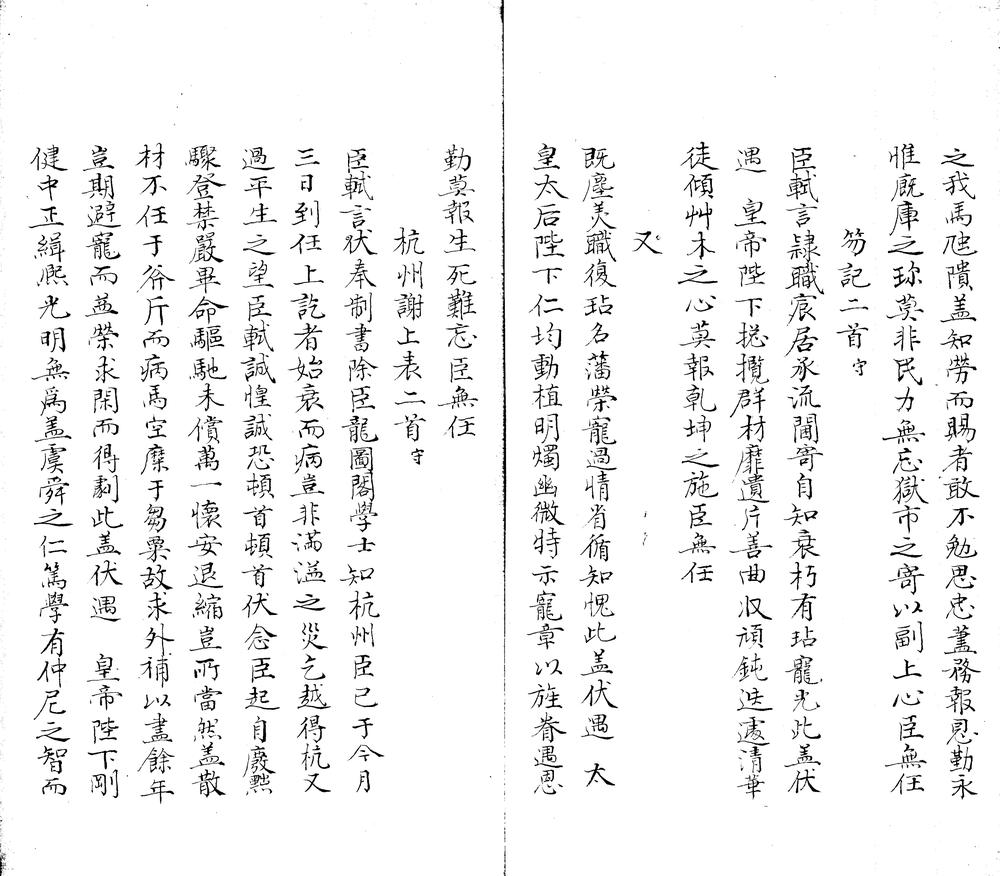 之我馬虺隤蓋知勞而賜者敢不勉思忠藎務報恩勤永
惟廐庫之珎莫非民力無忘獄市之寄以副上心臣無任
笏記二首 守
臣軾言隷職宸居承流閫寄自知衰朽有玷寵光此盖伏
遇　皇帝陛下揔攬群材靡遺片善曲収頑鈍迭處清華
徒傾艸木之心莫報乹坤之施臣無任
又
既塵羙職復玷名藩榮寵過情省循知愧此盖伏遇　太
皇太后陛下仁均動植明燭幽微特示寵章以旌眷遇恩
勤莫報生死難忘臣無任
杭州謝上表二首 守
臣軾言伏奉制書除臣龍圖閣學士知杭州臣已于今月
三日到任上訖者始衰而病豈非滿溢之災乞越得杭又
過平生之望臣軾誠惶誠恐頓首頓首伏念臣起自廢黜
驟登禁嚴畢命驅馳未償萬一懷安退縮豈所當然盖散
材不任于斧斤而病馬空糜于芻粟故求外補以盡餘年
豈期避寵而益榮求閑而得劇此盖伏遇　皇帝陛下剛
健中正緝熈光明無爲盖虞舜之仁篤學有仲尼之智而